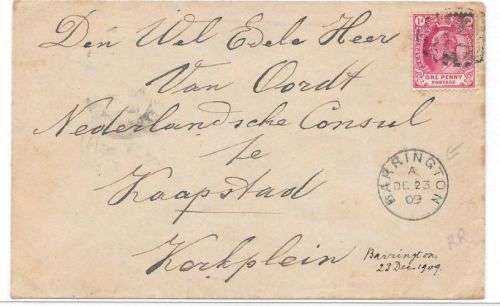 Den Wel Edele Heer
Van Oordt
Nederlandsche Consul
te
Kaapstad
Kerkplein
1d
ONE PENNY
POSTAGE
BARRINGTON
A
DE 23
09
Barrington
23 Dec 1909.
RR